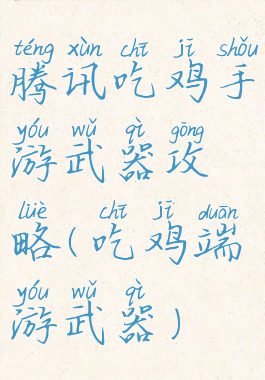 téng xùn chī jī shǒu
腾讯吃鸡手
yóu wǔ qì gōng
游武器攻
lüè chī jī duān
略(吃鸡端
yóu wǔ qì
游武器)